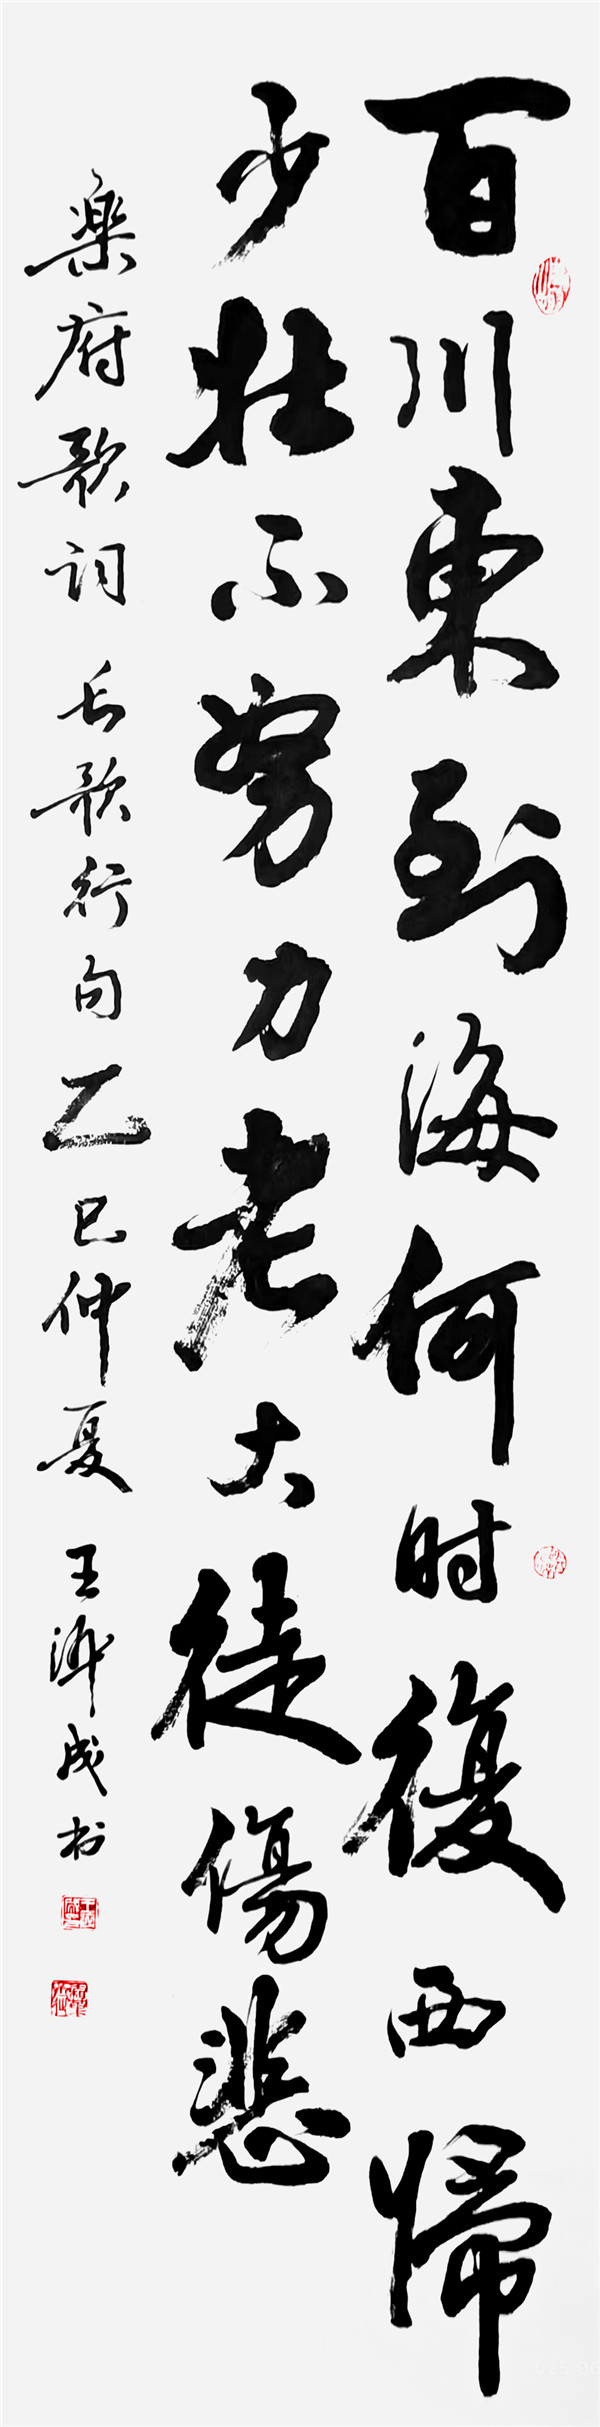 百川東到海何时復西歸
少壮不努力老大徒傷悲
樂府歌词 长歌行句 乙巳仲夏 王 成书